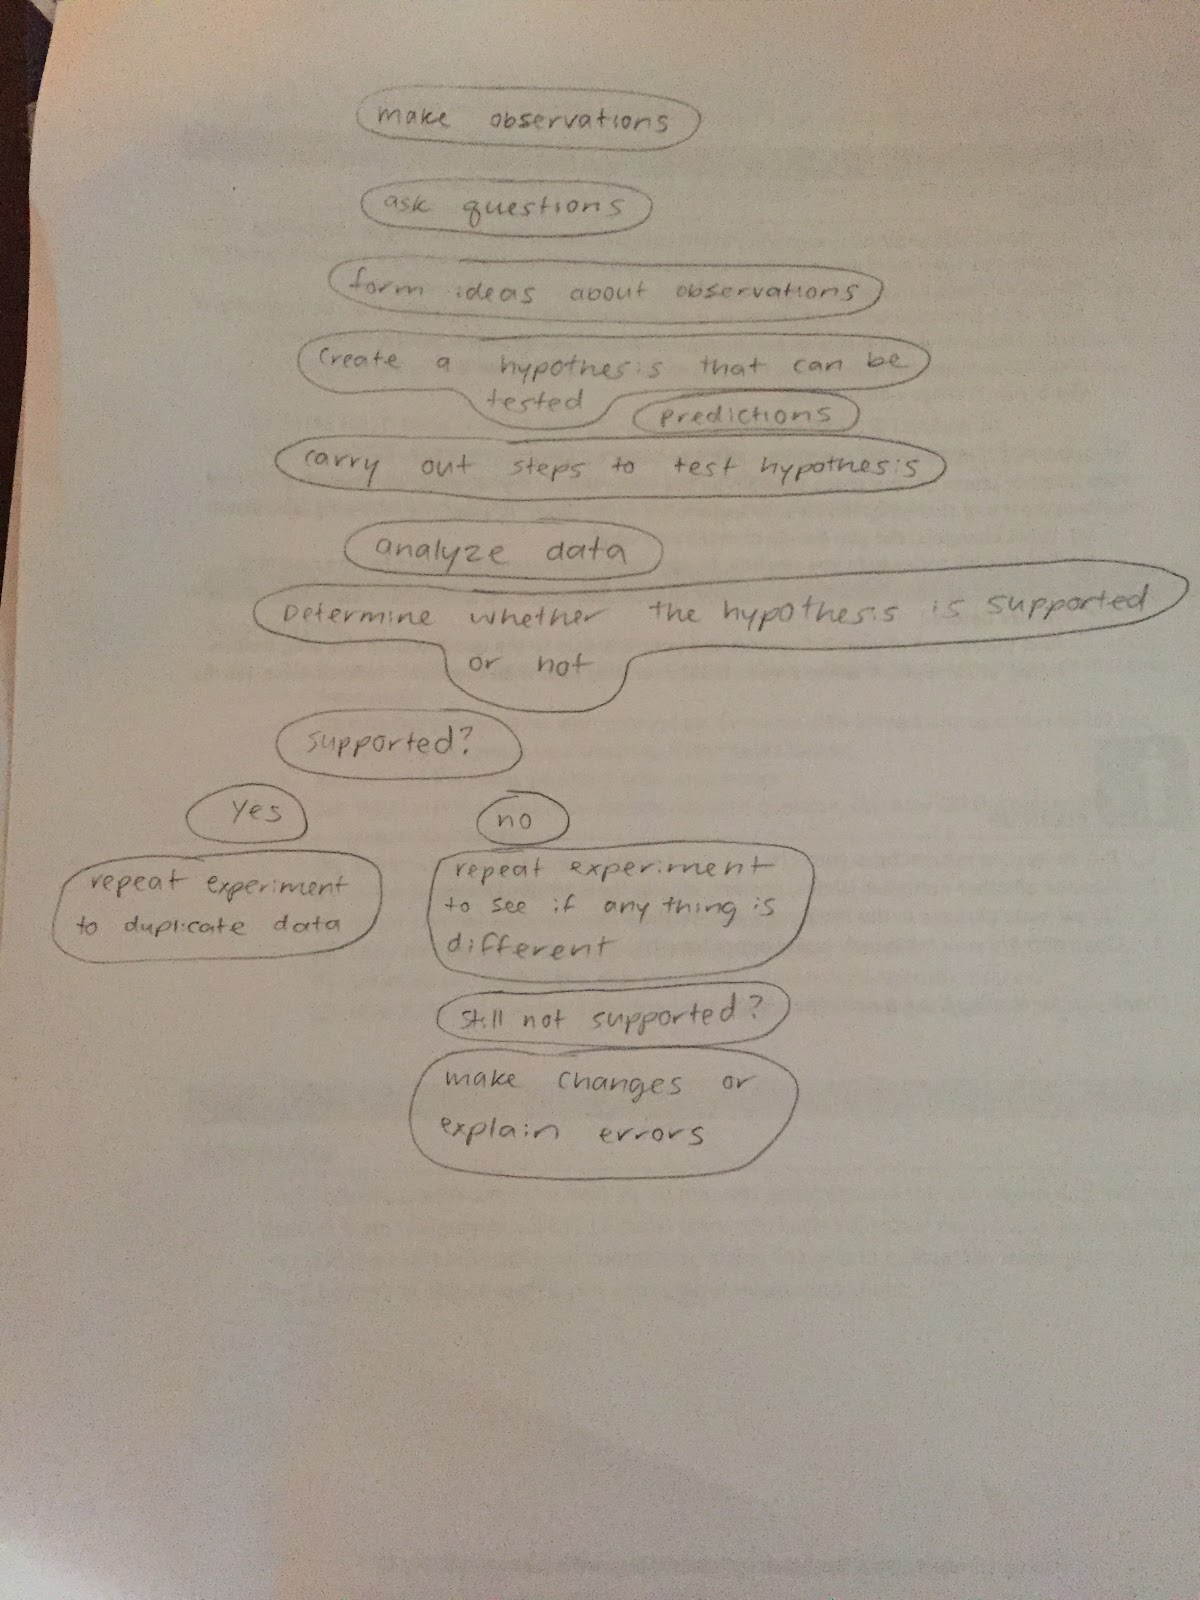 make observations
ask questions
form ideas about observations
Create a hypothesis that can be
tested
predictions
carry out steps to test hypothesis
analyze data
Determine whether the hypothesis is supported
or not
supported?
Yes
no
repeat experiment
to duplicate data
repeat experiment
to see if any thing is
different
still not supported?
make changes or
explain errors